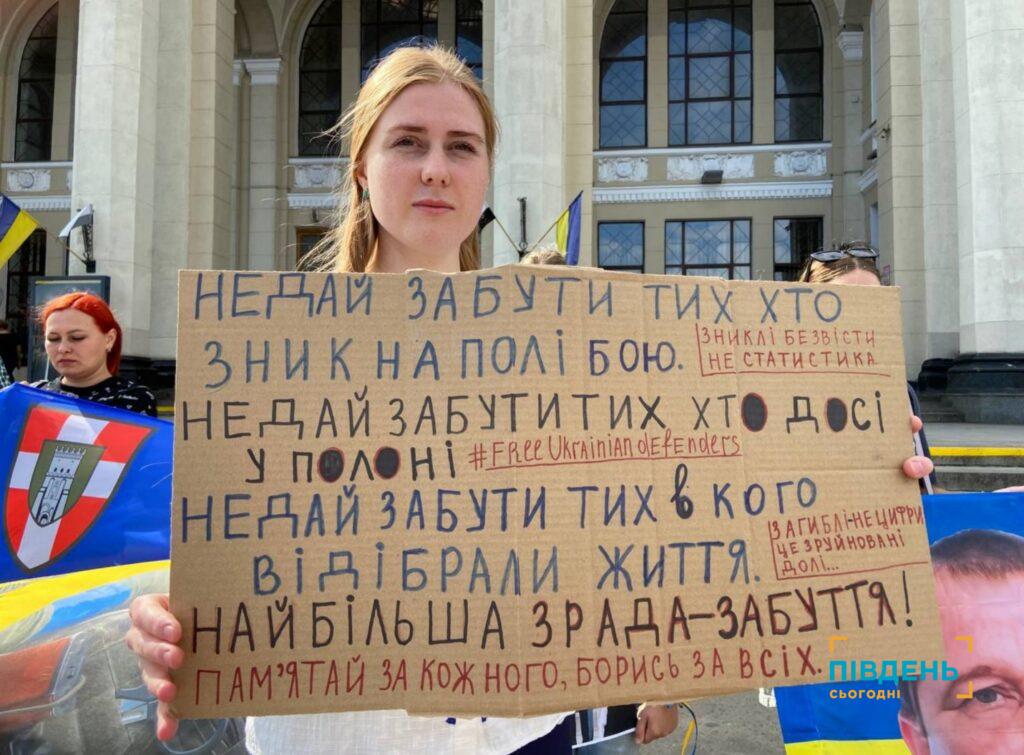 НЕДАЙ ЗАБУТИ ТИХ ХТО
ЗНИК НА ПОЛІ БОЮ.
ЗНИКЛІ БЕЗВІСТИ
НЕ СТАТИСТИКА
НЕДАЙ ЗАБУТИ ТИХ ХТО ДОСІ
У ПОЛОНІ #FREE UKRAINIAN dEFENdERS
НЕДАЙ ЗАБУТИ ТИХ В КОГО
ВІДІБРАЛИ ЖИТТЯ.
ЗАГИБЛІ-НЕ ЦИФРИ
ЦЕ ЗРУЙНОВАНІ
ДОЛІ...
НАЙБІЛЬША ЗРАДА-ЗАБУТТЯ!
ПАМ'ЯТАЙ ЗА КОЖНОГО, БОРИСЬ ЗА ВСІХ.
ПІВДЕНЬ
СЬОГОДНІ